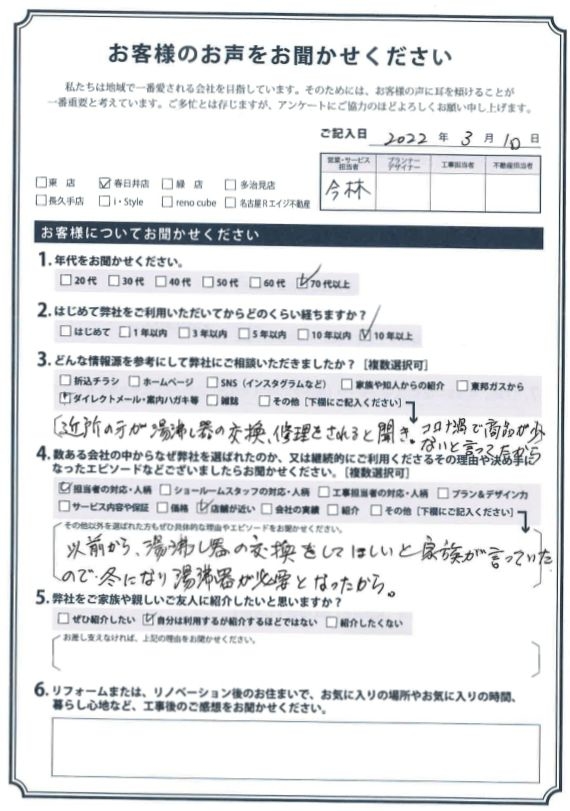 お客様のお声をお聞かせください
私たちは地域で一番愛される会社を目指しています。そのためには、お客様の声に耳を傾けることが
一番重要と考えています。ご多忙とは存じますが、アンケートにご協力のほどよろしくお願い申し上げます。
ご記入日 2022 年 3 月 10 日
営業・サービス担当者 プランナーデザイナー 工事担当者 不動産担当者
今林
□東 店 ☑春日井店 □緑 店 □多治見店
□長久手店 □i・Style □reno cube □名古屋Rエイジ不動産
お客様についてお聞かせください
1. 年代をお聞かせください。
□20代 □30代 □40代 □50代 □60代 ☑70代以上
2. はじめて弊社をご利用いただいてからどのくらい経ちますか?
□はじめて □1年以内 □3年以内 □5年以内 □10年以内 ☑10年以上
3. どんな情報源を参考にして弊社にご相談いただきましたか?[複数選択可]
□折込チラシ □ホームページ □SNS(インスタグラムなど) □家族や知人からの紹介 □東邦ガスから
☑ダイレクトメール・案内ハガキ等 □雑誌 □その他[下欄にご記入ください]
近所の方が湯沸し器の交換、修理をされると聞き。コロナ渦で商品が少
ないと言ってたから
4. 数ある会社の中からなぜ弊社を選ばれたのか、又は継続的にご利用くださるその理由や決め手に
なったエピソードなどございましたらお聞かせください。[複数選択可]
☑担当者の対応・人柄 □ショールームスタッフの対応・人柄 □工事担当者の対応・人柄 □プラン&デザイン力
□サービス内容や保証 □価格 ☑店舗が近い □会社の実績 □紹介 □その他[下欄にご記入ください]
その他以外を選ばれた方もぜひ具体的な理由やエピソードをお聞かせください。
以前から、湯沸し器の交換をしてほしいと家族が言っていた
ので冬になり湯沸器が必要となったから。
5. 弊社をご家族や親しいご友人に紹介したいと思いますか?
□ぜひ紹介したい ☑自分は利用するが紹介するほどではない □紹介したくない
お差し支えなければ、上記の理由をお聞かせください。
6. リフォームまたは、リノベーション後のお住まいで、お気に入りの場所やお気に入りの時間、
暮らし心地など、工事後のご感想をお聞かせください。